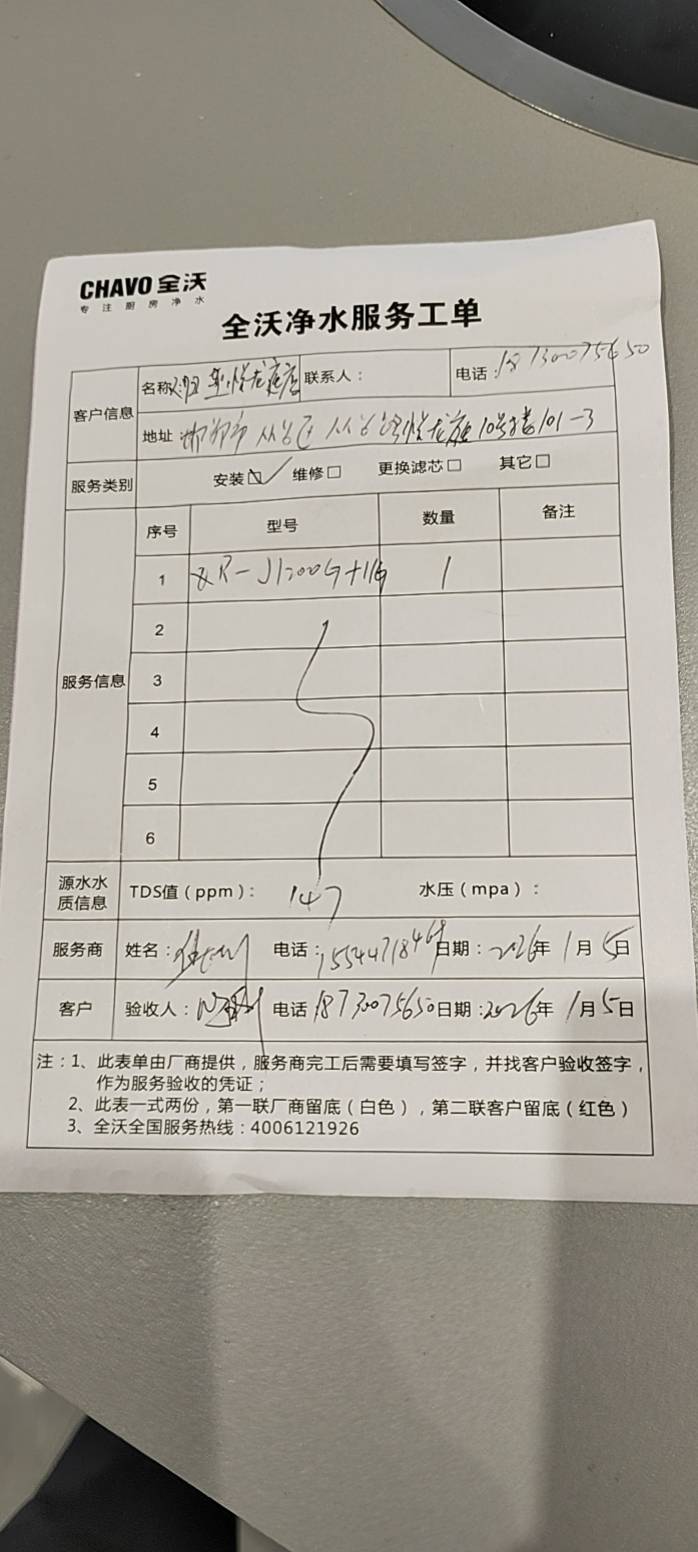 CHAVO 全沃
专注厨房净水
全沃净水服务工单
客户信息 名称 悦龙庭店 联系人： 电话：18730075650
地址：邯郸市 从台区 从台路悦龙庭10号楼101-3
服务类别 安装☑ 维修□ 更换滤芯□ 其它□
服务信息 序号 型号 数量 备注
1 R-J1200G+ 1
2
3
4
5
6
源水水质信息 TDS值（ppm）： 147 水压（mpa）：
服务商 姓名： 电话：15544718469 日期：2026年 1月 5日
客户 验收人： 电话 18730075650 日期：2026年 1月 5日
注：1、此表单由厂商提供，服务商完工后需要填写签字，并找客户验收签字，
作为服务验收的凭证；
2、此表一式两份，第一联厂商留底（白色），第二联客户留底（红色）
3、全沃全国服务热线：4006121926